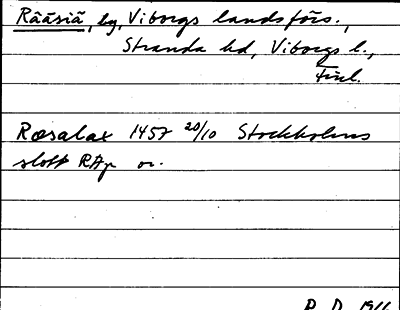 Rääsiä, by, Viborgs landsförs.,
Stranda hd, Viborgs l.,
Finl.
Ræsalax 1457 20/10 Stockholms
slott RAp or.
P. D. 1916